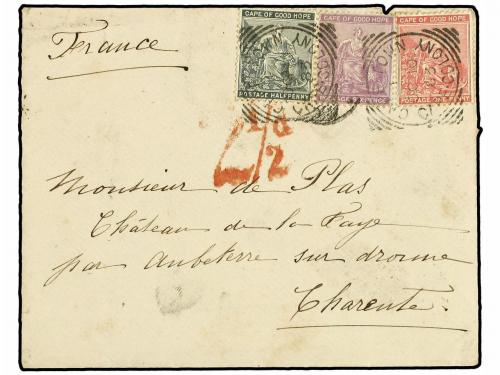 France
CAPE OF GOOD HOPE
POSTAGE HALFPENNY
CAPE OF GOOD HOPE
POSTAGE SIXPENCE
CAPE OF GOOD HOPE
POSTAGE ONE PENNY
COLONY
COLONY
1d/2
Monsieur de Plas
Château de la Faye
par Aubeterre sur dronne
Charente